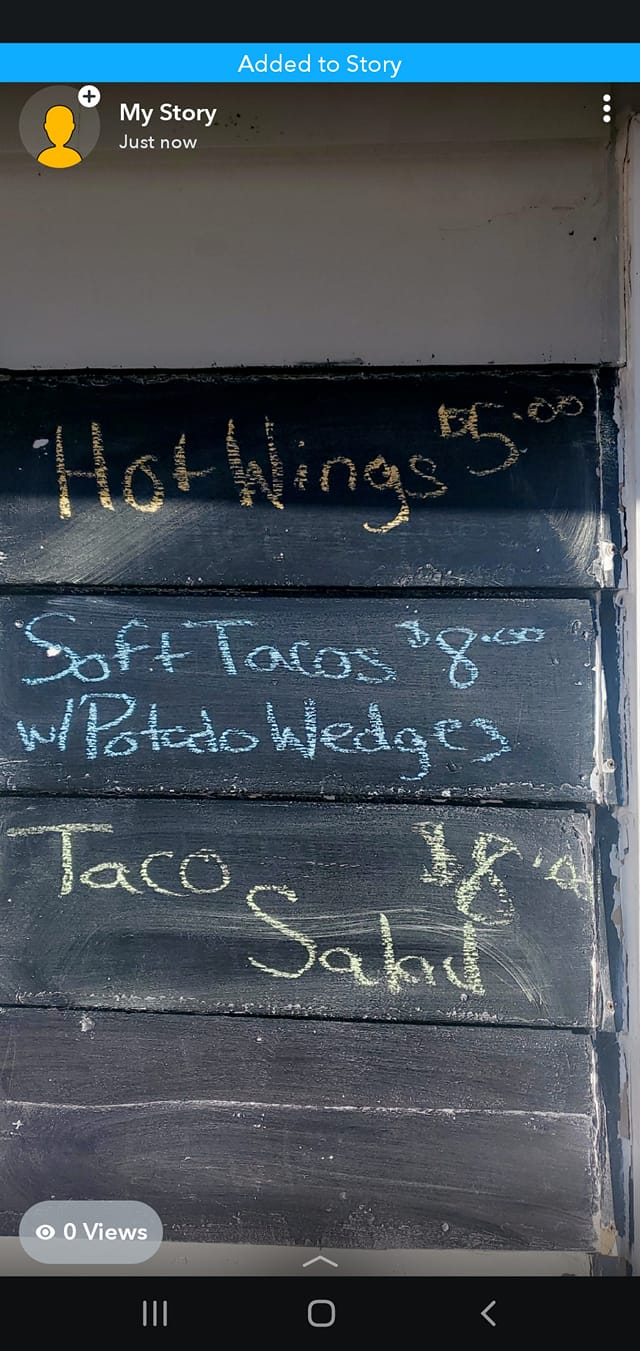 Added to Story
My Story
Just now
Hot Wings $5.00
Soft Tacos $8.00
w/Potado Wedges
Taco $8
Salad
0 Views